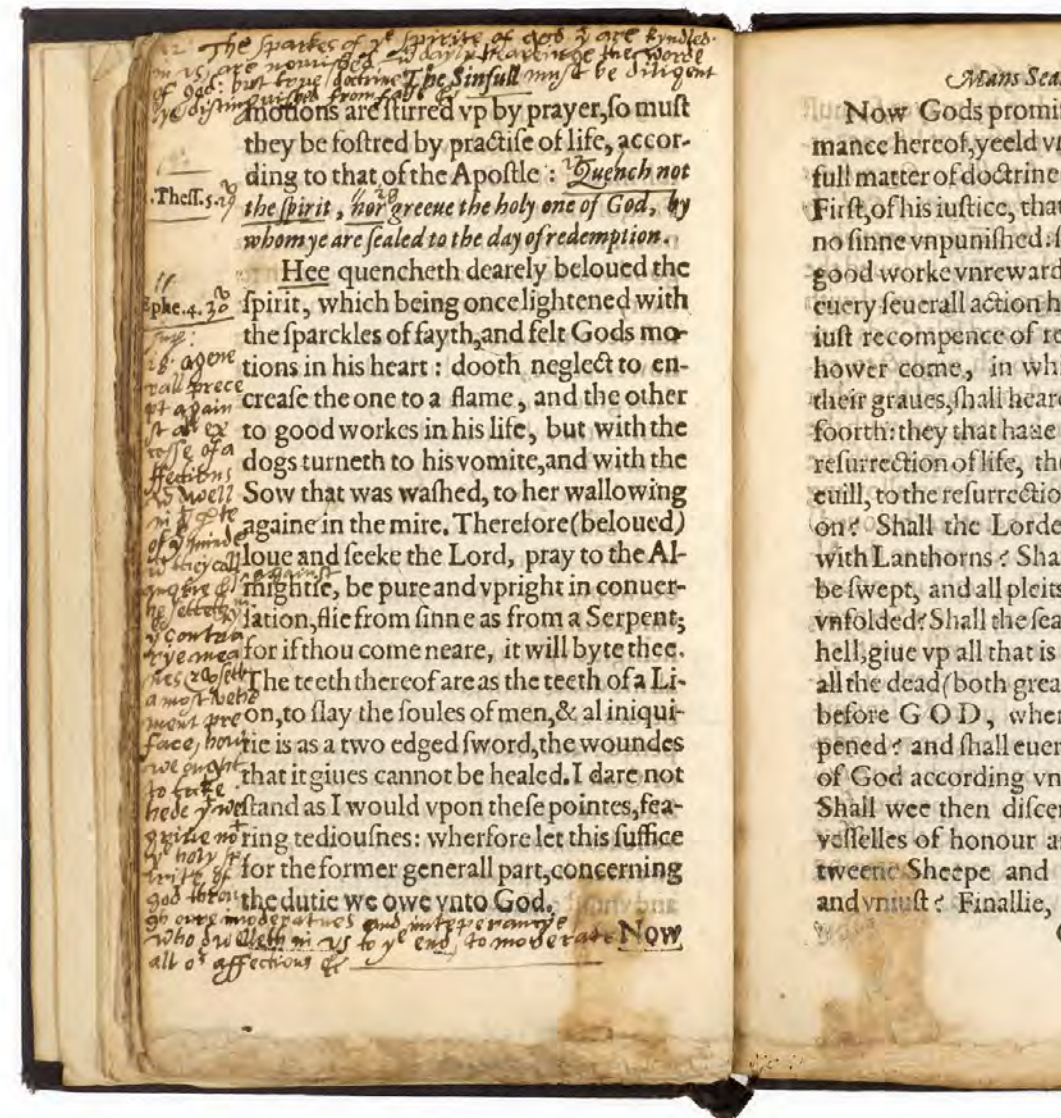 The sparkes of yͤ spirite of god yͭ are kyndled
in vs are norrished wͭ dayly hearinge the worde
of god: but trve doctrine must be diligent
lye distinguished from false &c
The Sinfull
motions are stirred vp by prayer, so must
they be fostred by practise of life, accor-
ding to that of the Apostle: Quench not
the spirit, nor greeue the holy one of God, by
whom ye are sealed to the day of redemption.
Hee quencheth dearely beloued the
spirit, which being once lightened with
the sparckles of fayth, and felt Gods mo-
tions in his heart: dooth neglect to en-
crease the one to a flame, and the other
to good workes in his life, but with the
dogs turneth to his vomite, and with the
Sow that was washed, to her wallowing
againe in the mire. Therefore (beloued)
loue and seeke the Lord, pray to the Al-
mightie, be pure and vpright in conuer-
sation, flie from sinne as from a Serpent;
for if thou come neare, it will byte thee.
The teeth thereof are as the teeth of a Li-
on, to slay the soules of men, & al iniqui-
tie is as a two edged sword, the woundes
that it giues cannot be healed. I dare not
stand as I would vpon these pointes, fea-
ring tediousnes: wherfore let this suffice
for the former generall part, concerning
the dutie we owe vnto God.
Now
.Thess.5.19
Ephe.4.30
agene
rall prece
pt again
st all ex
cesse of a
ffections
well
in
of yͤ minde
wͨ they call
angrye
against
he setteth
contra
rye mea
nes
a most vehe
ment pre
face, how
we ought
to take
hede yͭ we
grieue not
yͤ holy sp
irite of
god throu
gh ovre moderatnes and intẽperancye
who dwelleth in vs to yͤ end, to moderate
all oͬ affections &c
Mans Sea
Now Gods promi
mance hereof, yeeld v
full matter of doctrine
First, of his iustice, that
no sinne vnpunished:
good worke vnreward
euery seuerall action h
iust recompence of re
hower come, in whi
their graues, shall hear
foorth: they that haue
resurrection of life, the
euill, to the resurrectio
on? Shall the Lorde
with Lanthorns? Sha
be swept, and all pleits
vnfolded? Shall the sea
hell, giue vp all that is
all the dead (both grea
before GOD, wher
pened? and shall euer
of God according vn
Shall wee then discer
vesselles of honour a
tweene Sheepe and
and vniust? Finallie,